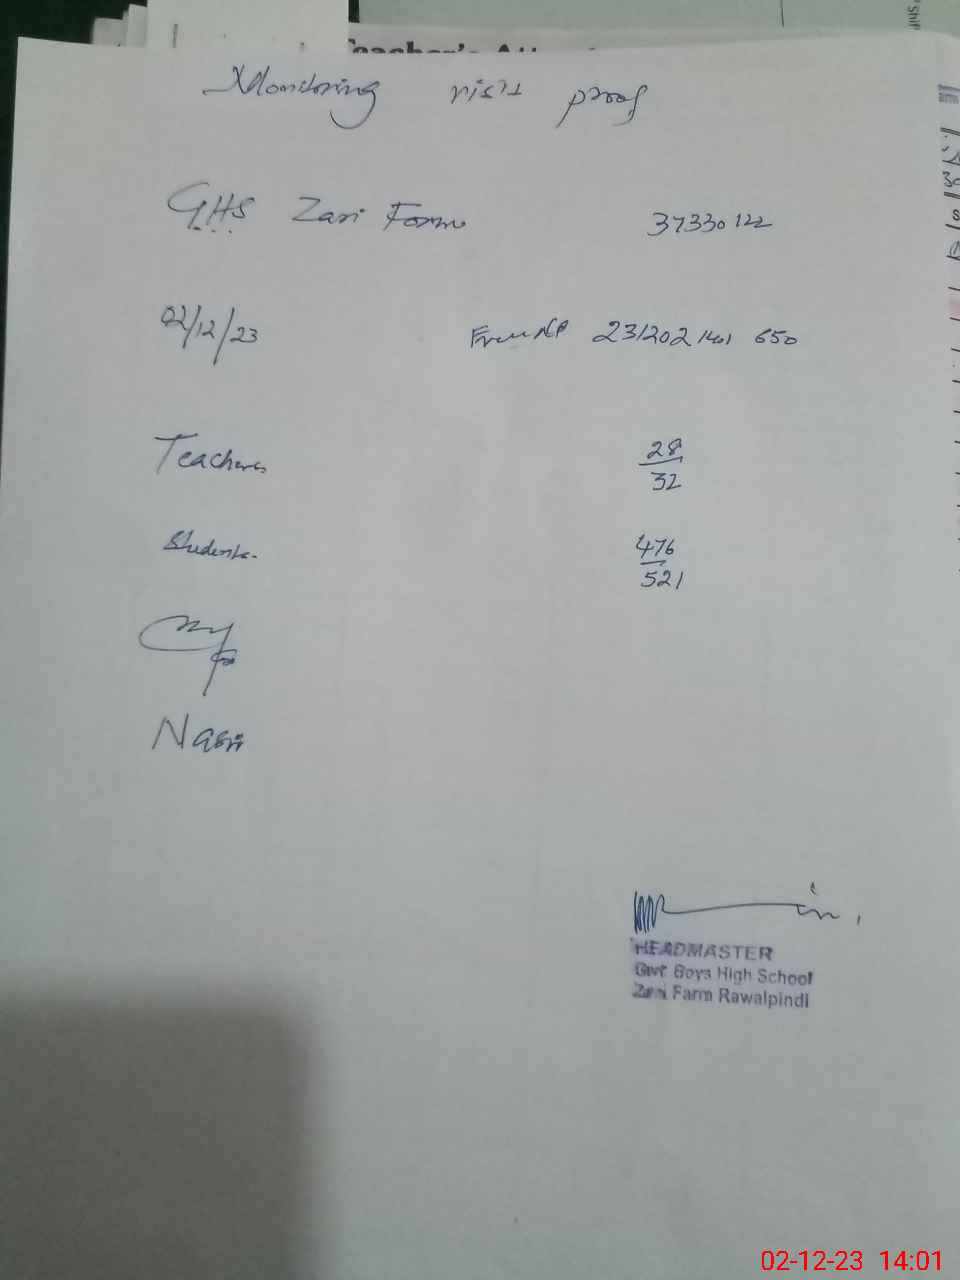 Teacher's
Monitoring visit proof
GHS Zari Farm 37330122
02/12/23 231202 1401 650
Teachers 28
32
Students 476
521
Nasir
HEADMASTER
Govt Boys High School
Zari Farm Rawalpindi
02-12-23 14:01